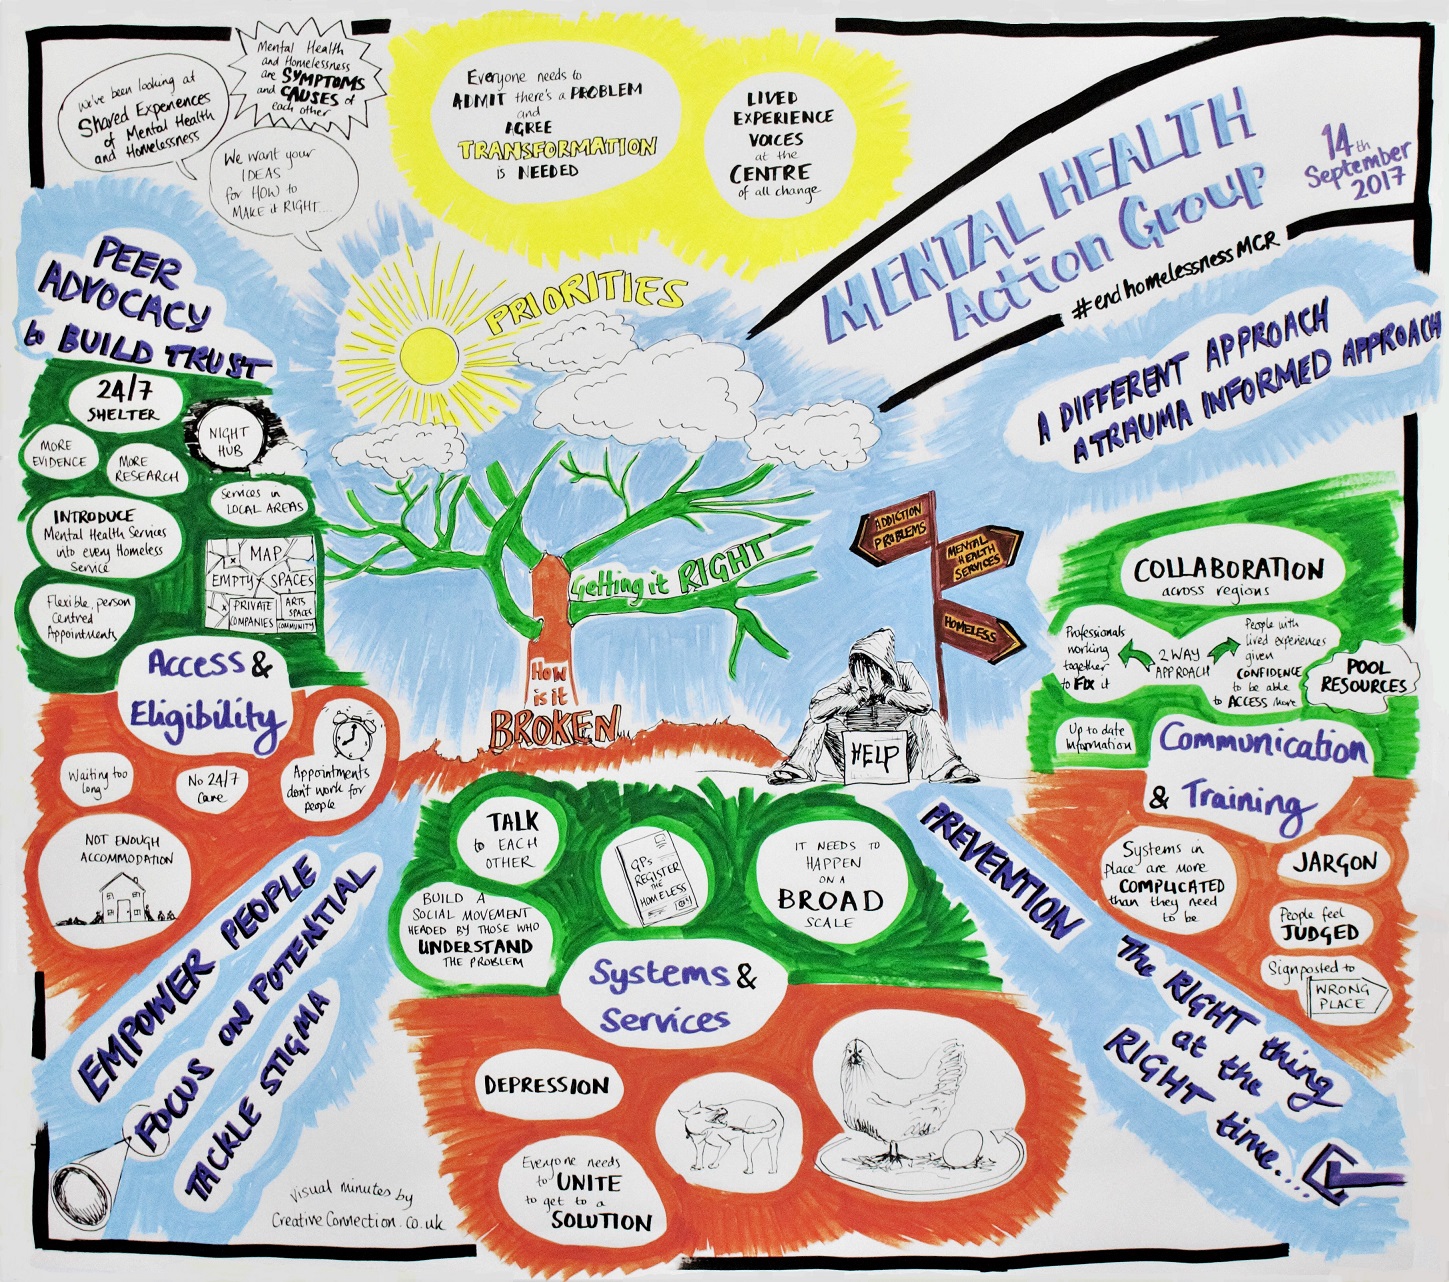 We've been looking at
Shared Experiences
of Mental Health
and Homelessness
Mental Health
and Homelessness
are SYMPTOMS
and CAUSES of
each other
We want your
IDEAS
for HOW to
MAKE it RIGHT....
Everyone needs to
ADMIT there's a PROBLEM
and
AGREE
TRANSFORMATION
is NEEDED
LIVED
EXPERIENCE
VOICES
at the
CENTRE
of all change
MENTAL HEALTH
Action Group
14th
September
2017
#endhomelessnessMCR
PRIORITIES
PEER
ADVOCACY
to BUILD TRUST
24/7
SHELTER
NIGHT
HUB
MORE
EVIDENCE
MORE
RESEARCH
Services in
LOCAL AREAS
INTRODUCE
Mental Health Services
into every Homeless
Service
MAP
EMPTY SPACES
PRIVATE
COMPANIES
ARTS
SPACES
COMMUNITY
Flexible, person
Centred
Appointments
Access &
Eligibility
Waiting too
long
No 24/7
Care
Appointments
don't work for
people
NOT ENOUGH
ACCOMMODATION
Getting it RIGHT
How
is it
BROKEN
ADDICTION
PROBLEMS
MENTAL
HEALTH
SERVICES
HOMELESS
HELP
A DIFFERENT APPROACH
A TRAUMA INFORMED APPROACH
COLLABORATION
across regions
Professionals
working
together
to FIX it
2 WAY
APPROACH
People with
lived experiences
given
CONFIDENCE
to be able
to ACCESS more
POOL
RESOURCES
Up to date
Information
Communication
& Training
Systems in
place are more
COMPLICATED
than they need
to be
JARGON
People feel
JUDGED
Signposted to
WRONG
PLACE
TALK
to EACH
OTHER
GPs
REGISTER
THE
HOMELESS
IT NEEDS TO
HAPPEN
ON A
BROAD
SCALE
BUILD A
SOCIAL MOVEMENT
HEADED BY THOSE WHO
UNDERSTAND
THE PROBLEM
Systems &
Services
DEPRESSION
Everyone needs
to UNITE
to get to a
SOLUTION
EMPOWER PEOPLE
FOCUS ON POTENTIAL
TACKLE STIGMA
PREVENTION
The RIGHT thing
at the
RIGHT time....
Visual minutes by
CreativeConnection.co.uk